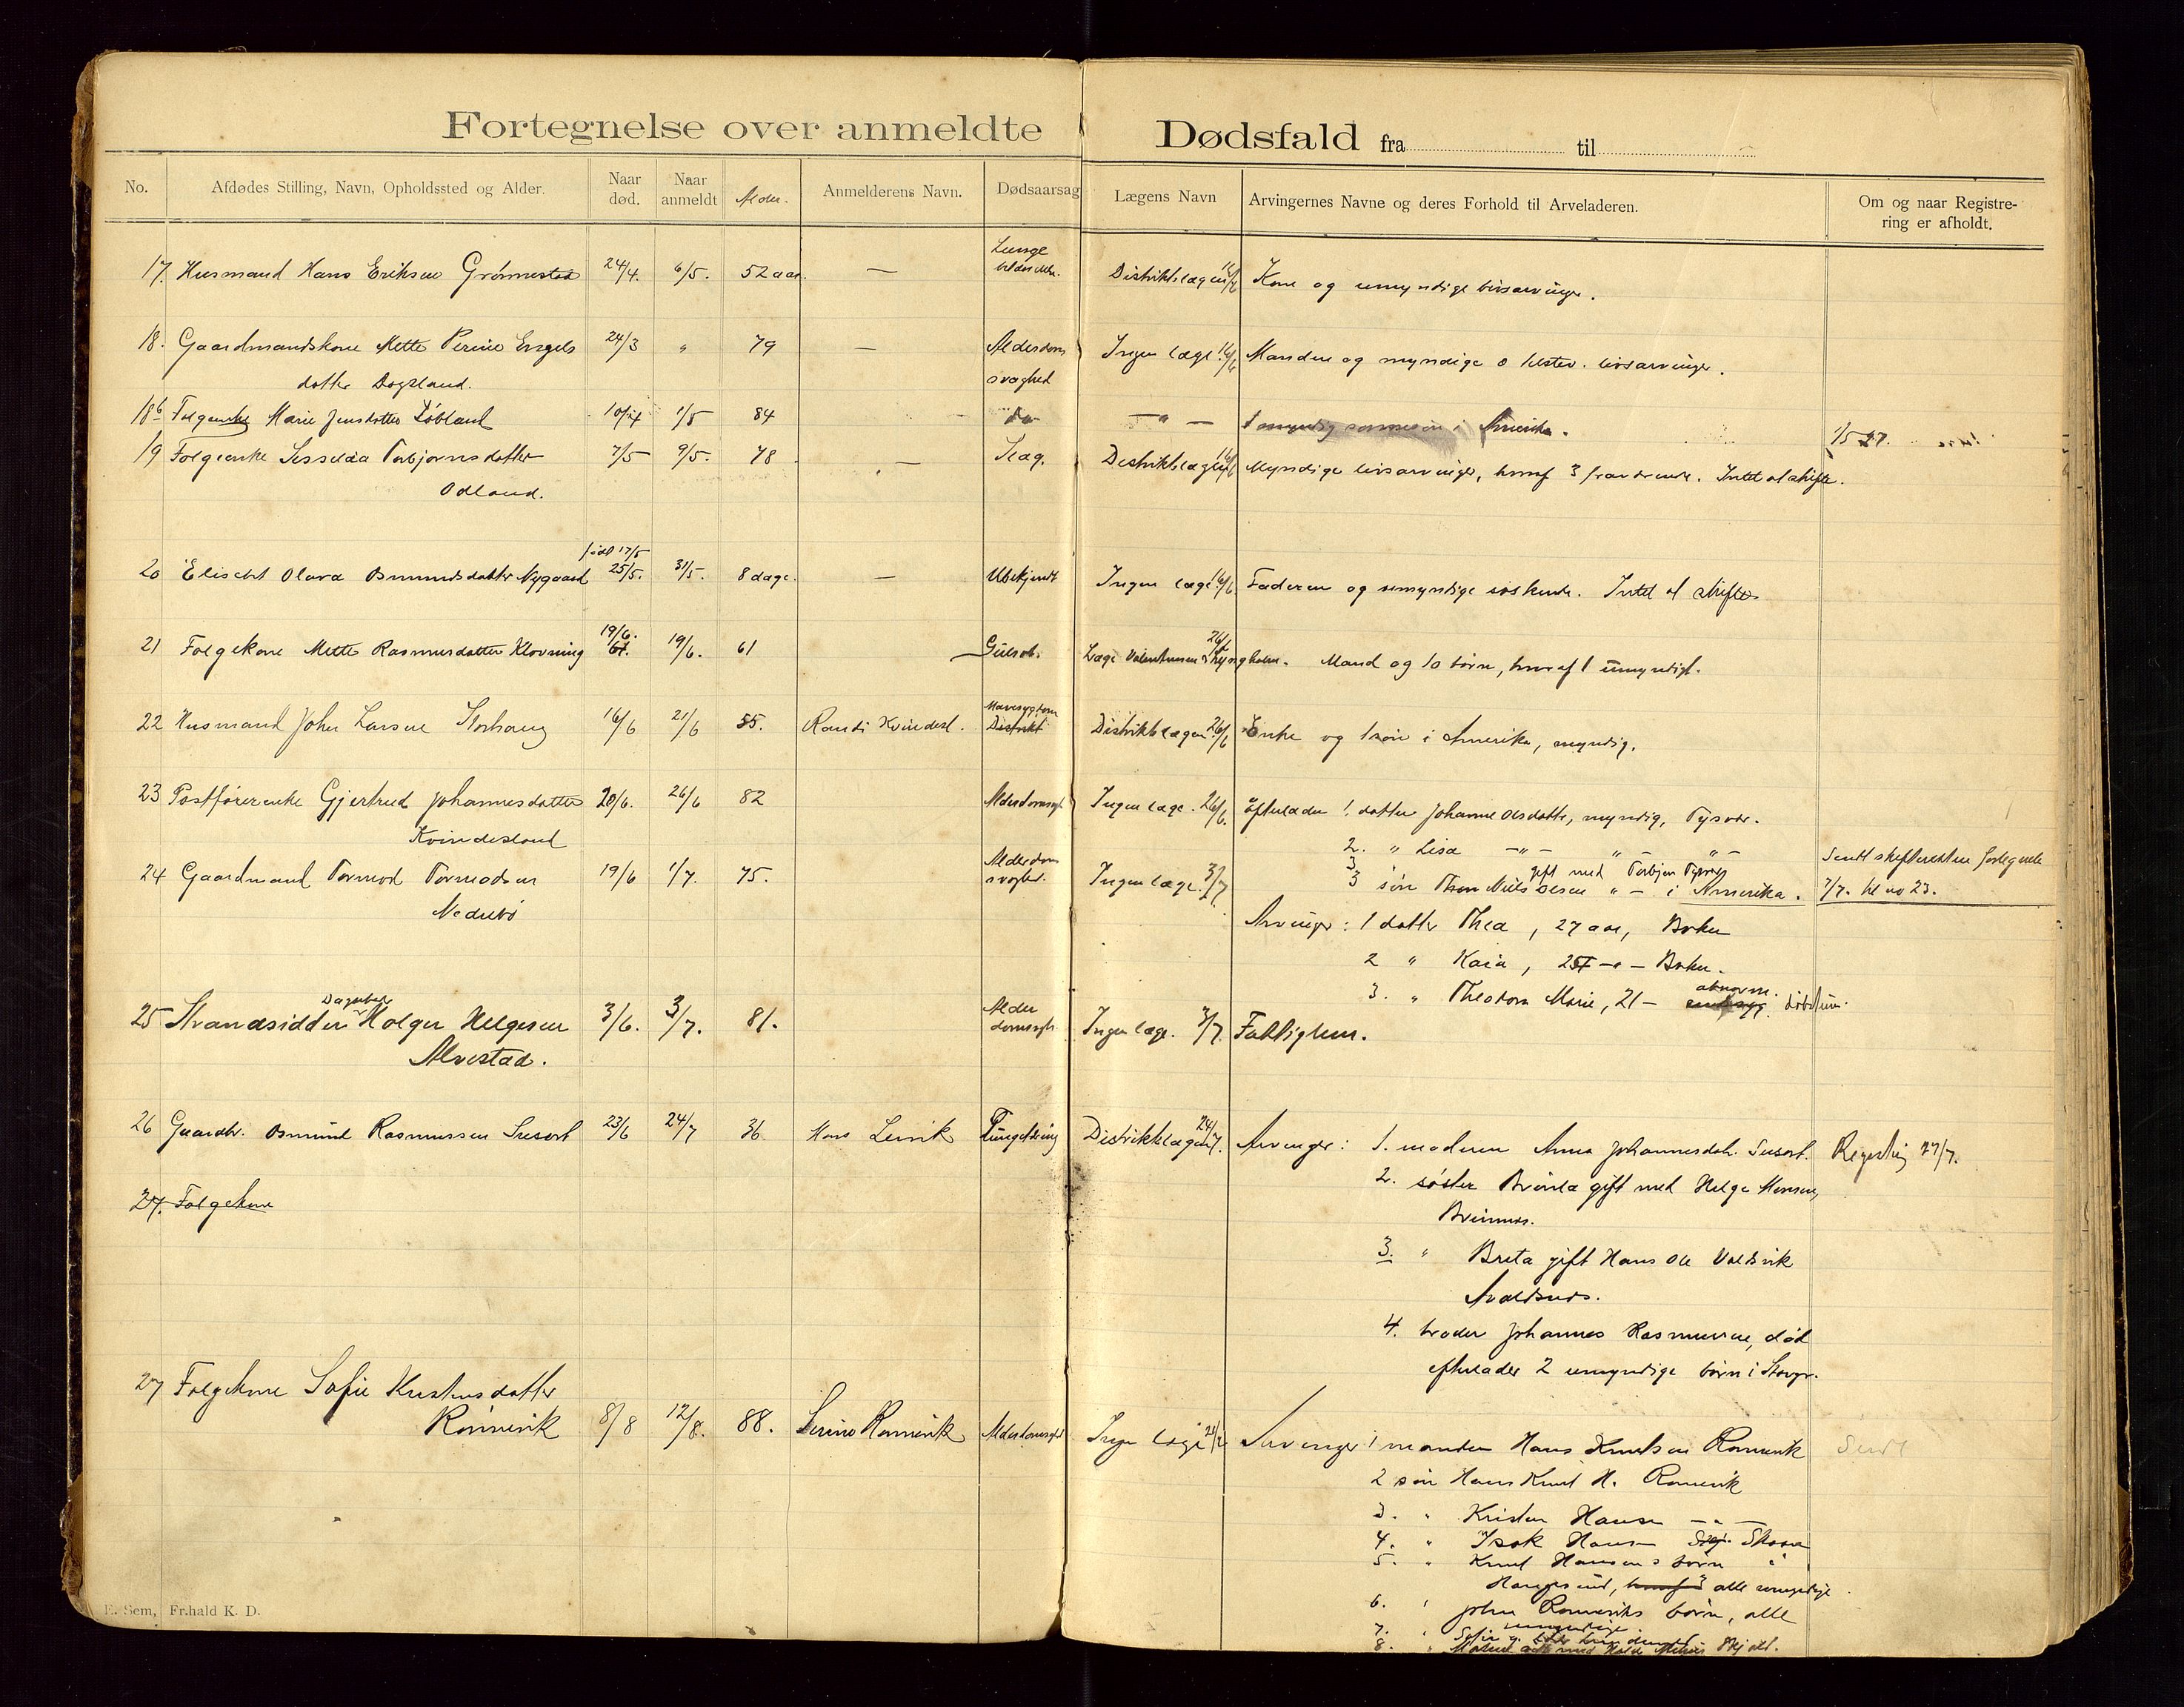 Fortegnelse over anmeldte Dødsfald fra til
No. Afdødes Stilling, Navn, Opholdssted og Alder. Naar død. Naar anmeldt Alder. Anmelderens Navn. Dødsaarsag Lægens Navn Arvingernes Navne og deres Forhold til Arveladeren. Om og naar Registrering er afholdt.
17. Husmand Hans Eriksen Grønnestad 24/4. 6/5. 52 aar. — Lunge Distriktslægen 16/6 Kone og umyndige livsarvinger.
18. Gaardmandskone Mette Perine Engels 24/3 " 79 — Alderdoms Ingen læge 16/6 Manden og myndige livsarvinger.
datter Dagsland. svaghed
18b Folgeenke Marie Jensdatter 10/4 1/5 84 do — " — 1 myndig i Amerika. 1/5 27
19 Folgeenke Sesselia Torbjørnsdatter 7/5 9/5. 78 — Slag. Distriktslægen 16/6 Myndige livsarvinger, hvoraf 3 fraværende. Intet at skifte.
Odland.
født 17/5
20 Elisabet Olava Osmundsdatter Nygaard 25/5. 31/5. 8 dage. — Ubekjendt Ingen læge 16/6 Faderen og umyndige søskende. Intet at skifte
21 Folgekone Mette Rasmusdatter Klovning 19/6. 19/6. 61 Gulsot. Læge Valentinsen 26/6 Mand og 10 børn, hvoraf 1 umyndigt.
22 Husmand John Larsen Storhaug 16/6 21/6 55. Randi Kvindesl. Mavesygdom Distrikt Distriktslægen 26/6 Enke og 1 søn i Amerika, myndig.
23 Postførerenke Gjertrud Johannesdatter 20/6. 26/6 82 Alderdomssvagh. Ingen læge. 26/6. Efterlader 1. datter Johanne Olsdatter, myndig, Tysvær.
Kvindesland
2. " Lisa — " — " — " —
gift med Torbjørn Tysvær
24 Gaardmand Tormod Tormodsen 19/6 1/7. 75. Alderdoms svaghed. Ingen læge. 3/7 3 søn Niels Olsen " — i Amerika. Sendt skifteretten fortegnelse 7/7. til no 23.
Nedrebø
Arvinger: 1 datter Thea, 27 aar, Bokn
2 " Kaia, 25 — " — Bokn.
3. " Theodora Marie, 21 — abnorm.
25 Strandsidder Dagarbeid Holger Helgesen 3/6. 3/7. 81. Alderdomssvgh. Ingen læge. 3/7. Fattiglem.
Alvestad.
26 Gaardbr. Osmund Rasmussen Susort 23/6 24/7 36 Hans Lervik Tungetæring Distriktslægen 24/7. Arvinger: 1. moderen Anna Johannesdatt. Susort. Registring 27/7.
27. Folgekone
2. søster gift med Helge Monsen,
3. " Breta gift Hans Ole Valdsvik
Avaldsnes.
4. broder Johannes Rasmussen, død
efterlader 2 umyndige børn i Stavgr.
27 Folgekone Sofie Kristensdatter
Rønnevik 8/8 12/8. 88. Serine Rønnevik Alderdomssvgh Ingen læge Arvinger 1 manden Hans Knutsen Rønnevik Sendt
2 søn Hans Knut H. Rønnevik
3. " Kristen Hansen — " —
4. " Isak Hansen Skaare
5. " Knut Hansens børn i
Haugesund, alle umyndige.
6. " John Rønneviks børn, alle
umyndige.
7. " Sofie
8. " gift med Skjold.
E. Sem, Fr.hald K. D.